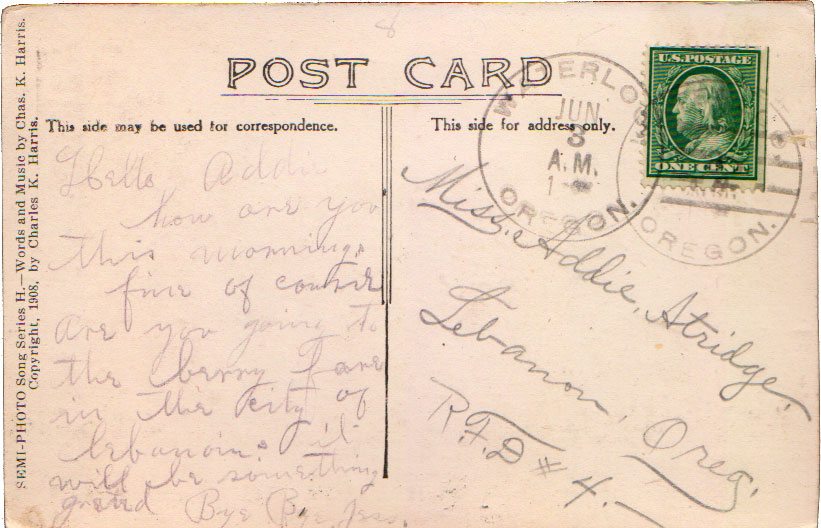 POST CARD
This side may be used for correspondence.
This side for address only.
SEMI-PHOTO Song Series H.—Words and Music by Chas. K. Harris.
Copyright, 1908, by Charles K. Harris.
WATERLOO
JUN
3
A.M.
OREGON.
OREGON.
U.S. POSTAGE
ONE CENT
Hello Addie
how are you
this morning.
fine of course
are you going to
the berry Fare
in the city of
lebanoin. it
will be something
grated Bye Bye Jess.
Miss. Addie, Atridge.
Lebanon, Oreg.
R.F.D # 4.